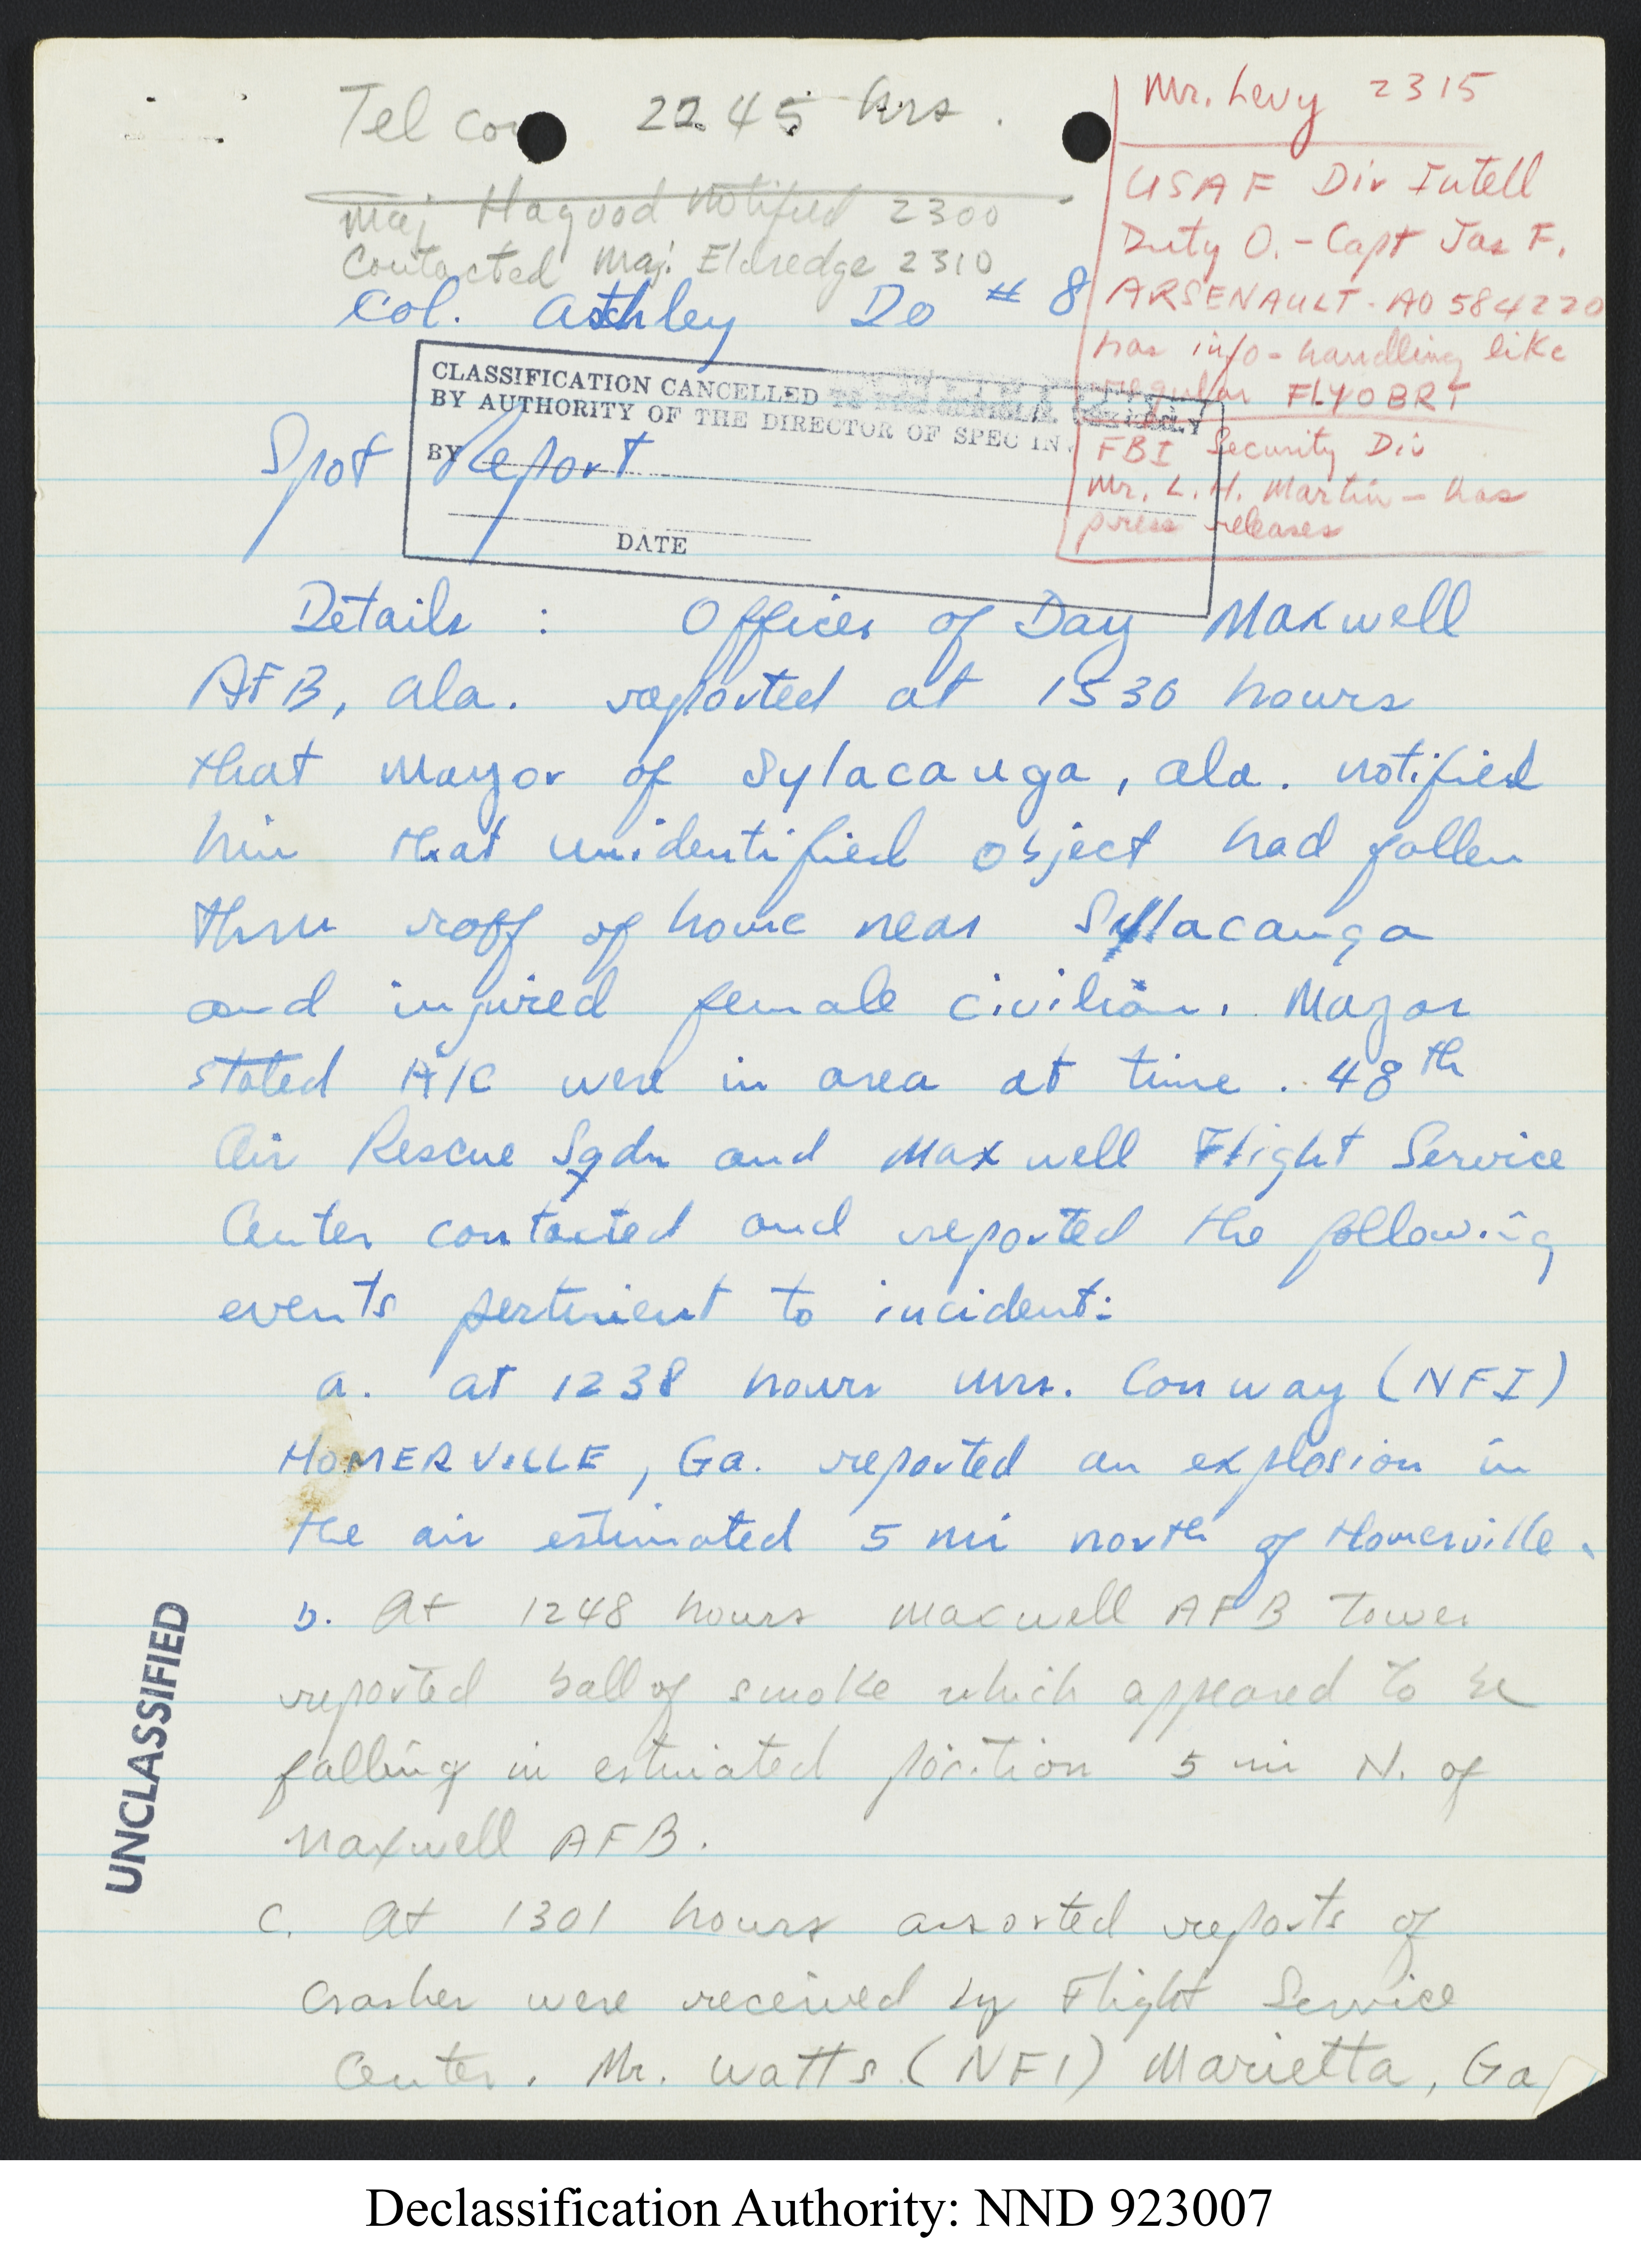 Tel con 2245 hrs.
Maj Hagood Notified 2300
Contacted Maj. Eldredge 2310
Col. Ashley DO # 8
Mr. Levy 2315
USAF Div Intell
Duty O. - Capt Jas F.
ARSENAULT - AO 584220
has info - handling like
regular FLYOBRT
FBI Security Div
Mr. L. H. Martin - has
press releases
CLASSIFICATION CANCELLED
BY AUTHORITY OF THE DIRECTOR OF SPEC IN
BY
DATE
Spot Report
Details : Officer of Day Maxwell
AFB, Ala. reported at 1530 hours
that Mayor of Sylacauga, Ala. notified
him that unidentified object had fallen
thru roof of home near Sylacauga
and injured female civilian. Mayor
stated A/C were in area at time. 48th
Air Rescue Sqdn and Maxwell Flight Service
Center contacted and reported the following
events pertinent to incident:
a. at 1238 hours Mrs. Conway (NFI)
HOMERVILLE, Ga. reported an explosion in
the air estimated 5 mi north of Homerville.
b. At 1248 hours Maxwell AFB Tower
reported ball of smoke which appeared to be
falling in estimated position 5 mi N. of
Maxwell AFB.
c. At 1301 hours assorted reports of
crashes were received by Flight Service
Center. Mr. Watts (NFI) Marietta, Ga
UNCLASSIFIED
Declassification Authority: NND 923007